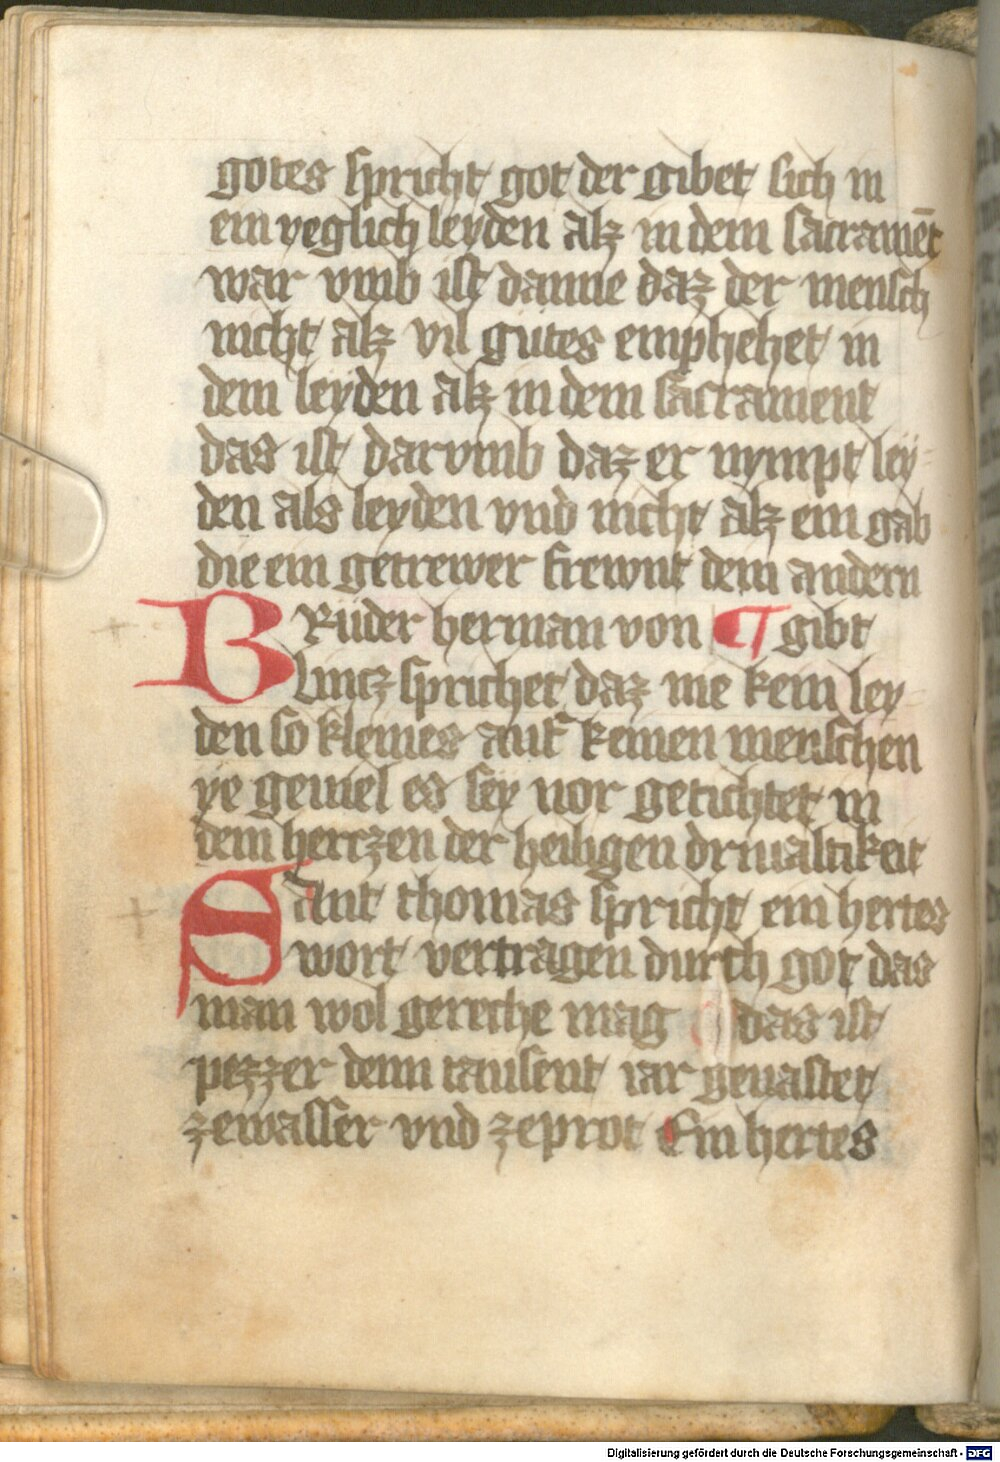 gotes spricht got der gibet sich in
ein yeglich leyden alz in dem sacramēt
war vmb ist danne daz der mensch
nicht alz vil gütes emphehet in
dem leyden alz in dem sacrament
das ist darvmb daz er nympt ley-
den als leyden vnd nicht alz ein gab
die ein getrewer frewnt dem andern
BRüder herman von ¶ gibt
Lincz sprichet daz nie kein ley-
den so kleines auf keinen menschen
ye geuiel es sey vor getichtet in
dem herczen der heiligen driualtikeit
Sant thomas spricht ein hertes
wort vertragen durch got das
man wol gereche mag das ist
pezzer denn tausent iar geuastet
zewasser vnd zeprot Ein hertes
Digitalisierung gefördert durch die Deutsche Forschungsgemeinschaft - DFG